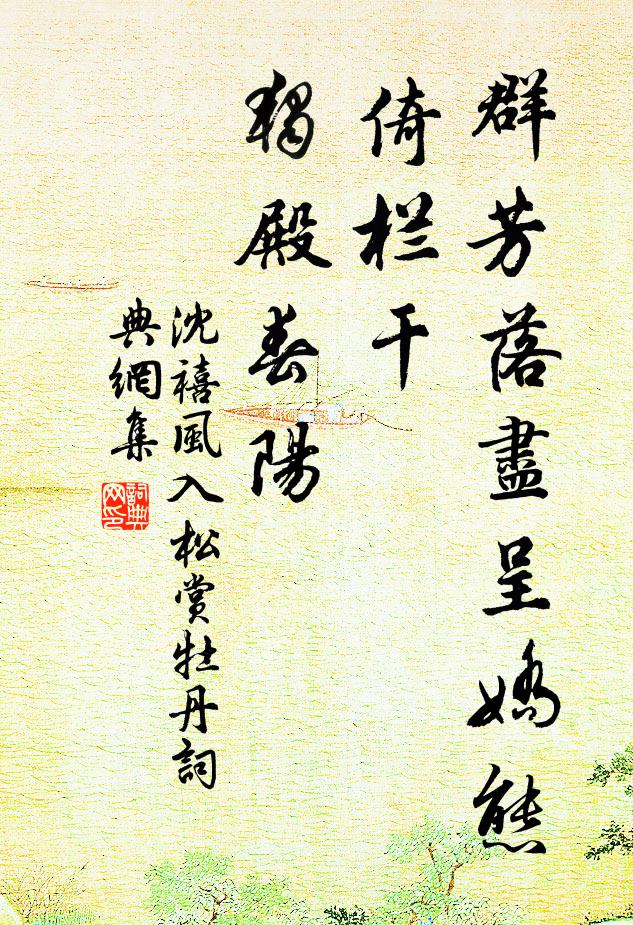 群芳落盡呈嬌態
倚栏干
獨殿春陽
沈禧風入松賞牡丹詞
典網集
詞典網印